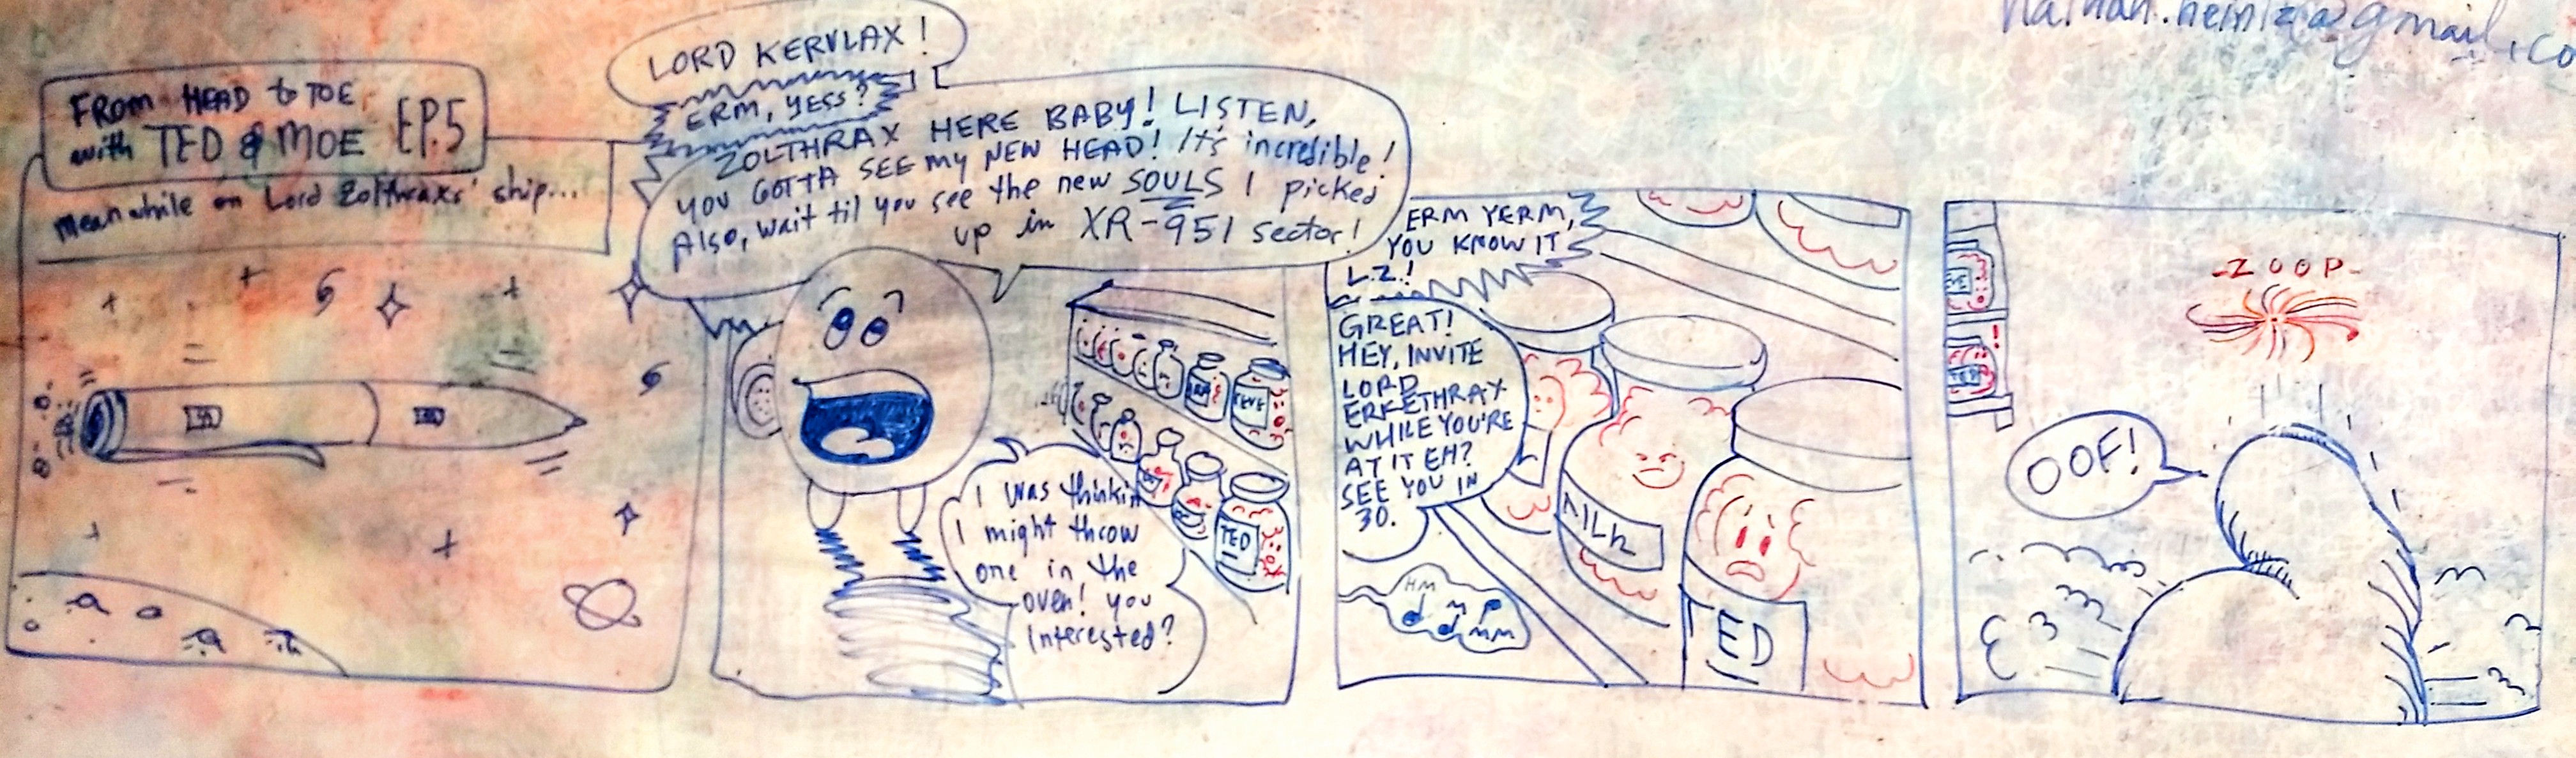 FROM HEAD to TOE
with TED & MOE EP.5
meanwhile on Lord Zolthraxs' ship...
LORD KERVLAX!
ERM, YESS?
ZOLTHRAX HERE BABY! LISTEN,
YOU GOTTA SEE my NEW HEAD! It's incredible!
Also, wait til you see the new SOULS I picked
up in XR-951 sector!
I was thinkin
I might throw
one in the
oven! you
interested?
TED
ERM YERM,
YOU KNOW IT
L.Z.!
GREAT!
HEY, INVITE
LORD
ERKETHRAX
WHILE YOU'RE
AT IT EH?
SEE YOU IN
30.
HM
m
mm
TED
-ZOOP-
OOF!